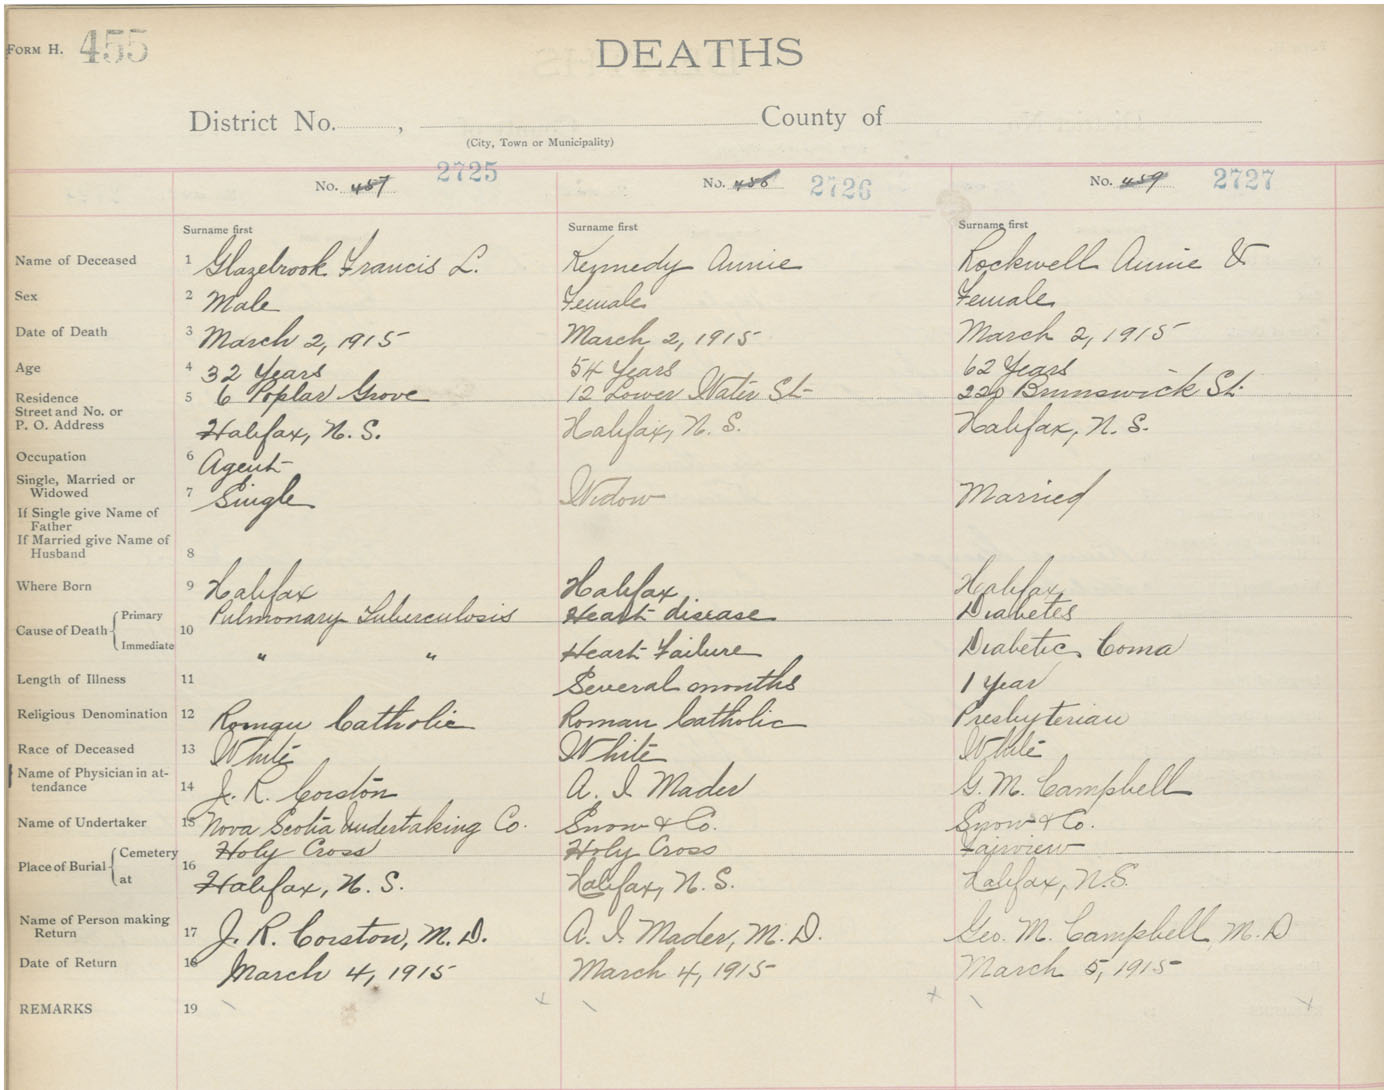 FORM H. 455
DEATHS
District No. , County of
(City, Town or Municipality)
No. 457 2725 No. 458 2726 No. 459 2727
Surname first Surname first Surname first
Name of Deceased 1 Glazebrook Francis L. Kennedy Annie Rockwell Annie
Sex 2 Male Female Female
Date of Death 3 March 2, 1915 March 2, 1915 March 2, 1915
Age 4 32 Years 54 Years 62 Years
Residence 5 6 Poplar Grove 12 Lower Water St. Brunswick St.
Street and No. or
P. O. Address Halifax, N. S. Halifax, N. S. Halifax, N. S.
Occupation 6 Agent
Single, Married or
Widowed 7 Single Widow Married
If Single give Name of
Father
If Married give Name of
Husband 8
Where Born 9 Halifax Halifax Halifax
Cause of Death Primary 10 Pulmonary Tuberculosis Heart disease Diabetes
Immediate " " Heart Failure Diabetic Coma
Length of Illness 11 Several months 1 Year
Religious Denomination 12 Roman Catholic Roman Catholic Presbyterian
Race of Deceased 13 White White White
Name of Physician in at-
tendance 14 J. R. Corston A. I. Mader G. M. Campbell
Name of Undertaker 15 Nova Scotia Undertaking Co. Snow & Co. Snow & Co.
Place of Burial Cemetery 16 Holy Cross Holy Cross Fairview
at Halifax, N. S. Halifax, N. S. Halifax, N.S.
Name of Person making
Return 17 J. R. Corston, M. D. A. I. Mader, M. D. Geo. M. Campbell, M. D
Date of Return 18 March 4, 1915 March 4, 1915 March 5, 1915
REMARKS 19